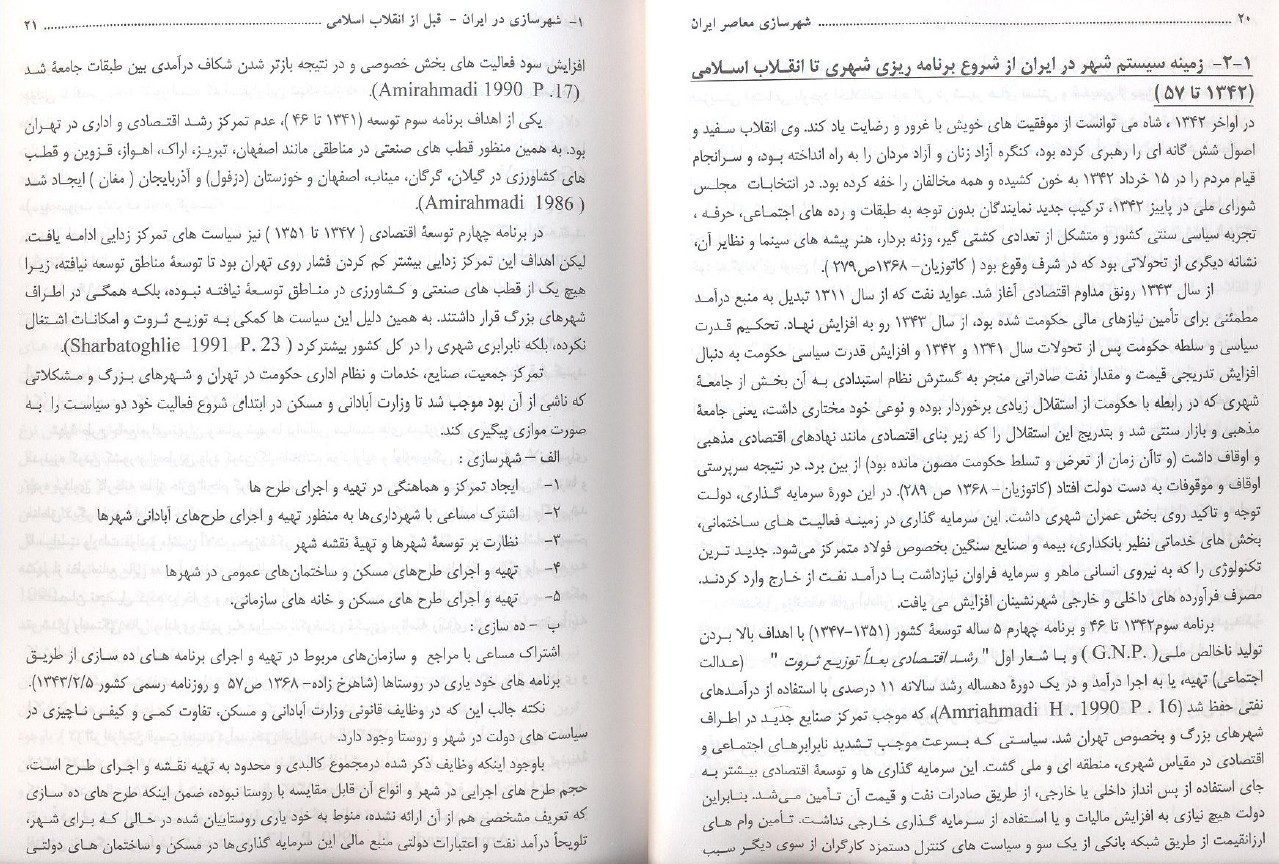 ۲۰ ........ شهرسازی معاصر ایران
۱-۲- زمینه سیستم شهر در ایران از شروع برنامه ریزی شهری تا انقلاب اسلامی
(۱۳۴۲ تا ۵۷)
در اواخر ۱۳۴۲ ، شاه می توانست از موفقیت های خویش با غرور و رضایت یاد کند. وی انقلاب سفید و
اصول شش گانه ای را رهبری کرده بود، کنگره آزاد زنان و آزاد مردان را به راه انداخته بود، و سرانجام
قیام مردم را در ۱۵ خرداد ۱۳۴۲ به خون کشیده و همه مخالفان را خفه کرده بود. در انتخابات مجلس
شورای ملی در پاییز ۱۳۴۲، ترکیب جدید نمایندگان بدون توجه به طبقات و رده های اجتماعی، حرفه ،
تجربه سیاسی سنتی کشور و متشکل از تعدادی کشتی گیر، وزنه بردار، هنر پیشه های سینما و نظایر آن،
نشانه دیگری از تحولاتی بود که در شرف وقوع بود ( کاتوزیان- ۱۳۶۸ص۲۷۹ ).
از سال ۱۳۴۳ رونق مداوم اقتصادی آغاز شد. عواید نفت که از سال ۱۳۱۱ تبدیل به منبع درآمد
مطمئنی برای تأمین نیازهای مالی حکومت شده بود، از سال ۱۳۴۳ رو به افزایش نهاد. تحکیم قدرت
سیاسی و سلطه حکومت پس از تحولات سال ۱۳۴۱ و ۱۳۴۲ و افزایش قدرت سیاسی حکومت به دنبال
افزایش تدریجی قیمت و مقدار نفت صادراتی منجر به گسترش نظام استبدادی به آن بخش از جامعهٔ
شهری که در رابطه با حکومت از استقلال زیادی برخوردار بوده و نوعی خود مختاری داشت، یعنی جامعهٔ
مذهبی و بازار سنتی شد و بتدریج این استقلال را که زیر بنای اقتصادی مانند نهادهای اقتصادی مذهبی
و اوقاف داشت (و تاآن زمان از تعرض و تسلط حکومت مصون مانده بود) از بین برد. در نتیجه سرپرستی
اوقاف و موقوفات به دست دولت افتاد (کاتوزیان- ۱۳۶۸ ص ۲۸۹). در این دورهٔ سرمایه گذاری، دولت
توجه و تاکید روی بخش عمران شهری داشت. این سرمایه گذاری در زمینه فعالیت های ساختمانی،
بخش های خدماتی نظیر بانکداری، بیمه و صنایع سنگین بخصوص فولاد متمرکز می‌شود. جدید ترین
تکنولوژی را که به نیروی انسانی ماهر و سرمایه فراوان نیازداشت با درآمد نفت از خارج وارد کردند.
مصرف فرآورده های داخلی و خارجی شهرنشینان افزایش می یافت.
برنامه سوم۱۳۴۲ تا ۴۶ و برنامه چهارم ۵ ساله توسعهٔ کشور (۱۳۵۱-۱۳۴۷) با اهداف بالا بردن
تولید ناخالص ملی( .G.N.P ) و با شعار اول " رشد اقتصادی بعداً توزیع ثروت " (عدالت
اجتماعی) تهیه، یا به اجرا درآمد و در یک دورهٔ دهساله رشد سالانه ۱۱ درصدی با استفاده از درآمدهای
نفتی حفظ شد (Amriahmadi H . 1990 P . 16)، که موجب تمرکز صنایع جدید در اطراف
شهرهای بزرگ و بخصوص تهران شد. سیاستی که بسرعت موجب تشدید نابرابرهای اجتماعی و
اقتصادی در مقیاس شهری، منطقه ای و ملی گشت. این سرمایه گذاری ها و توسعهٔ اقتصادی بیشتر به
جای استفاده از پس انداز داخلی یا خارجی، از طریق صادرات نفت و قیمت آن تأمین می‌شد. بنابراین
دولت هیچ نیازی به افزایش مالیات و یا استفاده از سرمایه گذاری خارجی نداشت. تأمین وام های
ارزانقیمت از طریق شبکه بانکی از یک سو و سیاست های کنترل دستمزد کارگران از سوی دیگر سبب
۱- شهرسازی در ایران - قبل از انقلاب اسلامی ........ ۲۱
افزایش سود فعالیت های بخش خصوصی و در نتیجه بازتر شدن شکاف درآمدی بین طبقات جامعهٔ شد
(Amirahmadi 1990 P .17).
یکی از اهداف برنامه سوم توسعه (۱۳۴۱ تا ۴۶ )، عدم تمرکز رشد اقتصادی و اداری در تهران
بود. به همین منظور قطب های صنعتی در مناطقی مانند اصفهان، تبریز، اراک، اهواز، قزوین و قطب
های کشاورزی در گیلان، گرگان، میناب، اصفهان و خوزستان (دزفول) و آذربایجان ( مغان ) ایجاد شد
(Amirahmadi 1986 ).
در برنامه چهارم توسعهٔ اقتصادی ( ۱۳۴۷ تا ۱۳۵۱ ) نیز سیاست های تمرکز زدایی ادامه یافت.
لیکن اهداف این تمرکز زدایی بیشتر کم کردن فشار روی تهران بود تا توسعهٔ مناطق توسعه نیافته، زیرا
هیچ یک از قطب های صنعتی و کشاورزی در مناطق توسعهٔ نیافته نبوده، بلکه همگی در اطراف
شهرهای بزرگ قرار داشتند. به همین دلیل این سیاست ها کمکی به توزیع ثروت و امکانات اشتغال
نکرده، بلکه نابرابری شهری را در کل کشور بیشترکرد ( Sharbatoghlie 1991 P. 23).
تمرکز جمعیت، صنایع، خدمات و نظام اداری حکومت در تهران و شهرهای بزرگ و مشکلاتی
که ناشی از آن بود موجب شد تا وزارت آبادانی و مسکن در ابتدای شروع فعالیت خود دو سیاست را به
صورت موازی پیگیری کند.
الف – شهرسازی :
۱- ایجاد تمرکز و هماهنگی در تهیه و اجرای طرح ها
۲- اشترک مساعی با شهرداری‌ها به منظور تهیه و اجرای طرح‌های آبادانی شهرها
۳- نظارت بر توسعهٔ شهرها و تهیهٔ نقشه شهر
۴- تهیه و اجرای طرح‌های مسکن و ساختمان‌های عمومی در شهرها
۵- تهیه و اجرای طرح های مسکن و خانه های سازمانی.
ب – ده سازی :
اشتراک مساعی با مراجع و سازمان‌های مربوط در تهیه و اجرای برنامه های ده سازی از طریق
برنامه های خود یاری در روستاها (شاهرخ زاده- ۱۳۶۸ ص۵۷ و روزنامه رسمی کشور ۱۳۴۳/۲/۵).
نکته جالب این که در وظایف قانونی وزارت آبادانی و مسکن، تفاوت کمی و کیفی ناچیزی در
سیاست های دولت در شهر و روستا وجود دارد.
باوجود اینکه وظایف ذکر شده درمجموع کالبدی و محدود به تهیه نقشه و اجرای طرح است،
حجم طرح های اجرایی در شهر و انواع آن قابل مقایسه با روستا نبوده، ضمن اینکه طرح های ده سازی
که تعریف مشخصی هم از آن ارائه نشده، منوط به خود یاری روستاییان شده در حالی که برای شهر،
تلویحاً درآمد نفت و اعتبارات دولتی منبع مالی این سرمایه گذاری‌ها در مسکن و ساختمان های دولتی